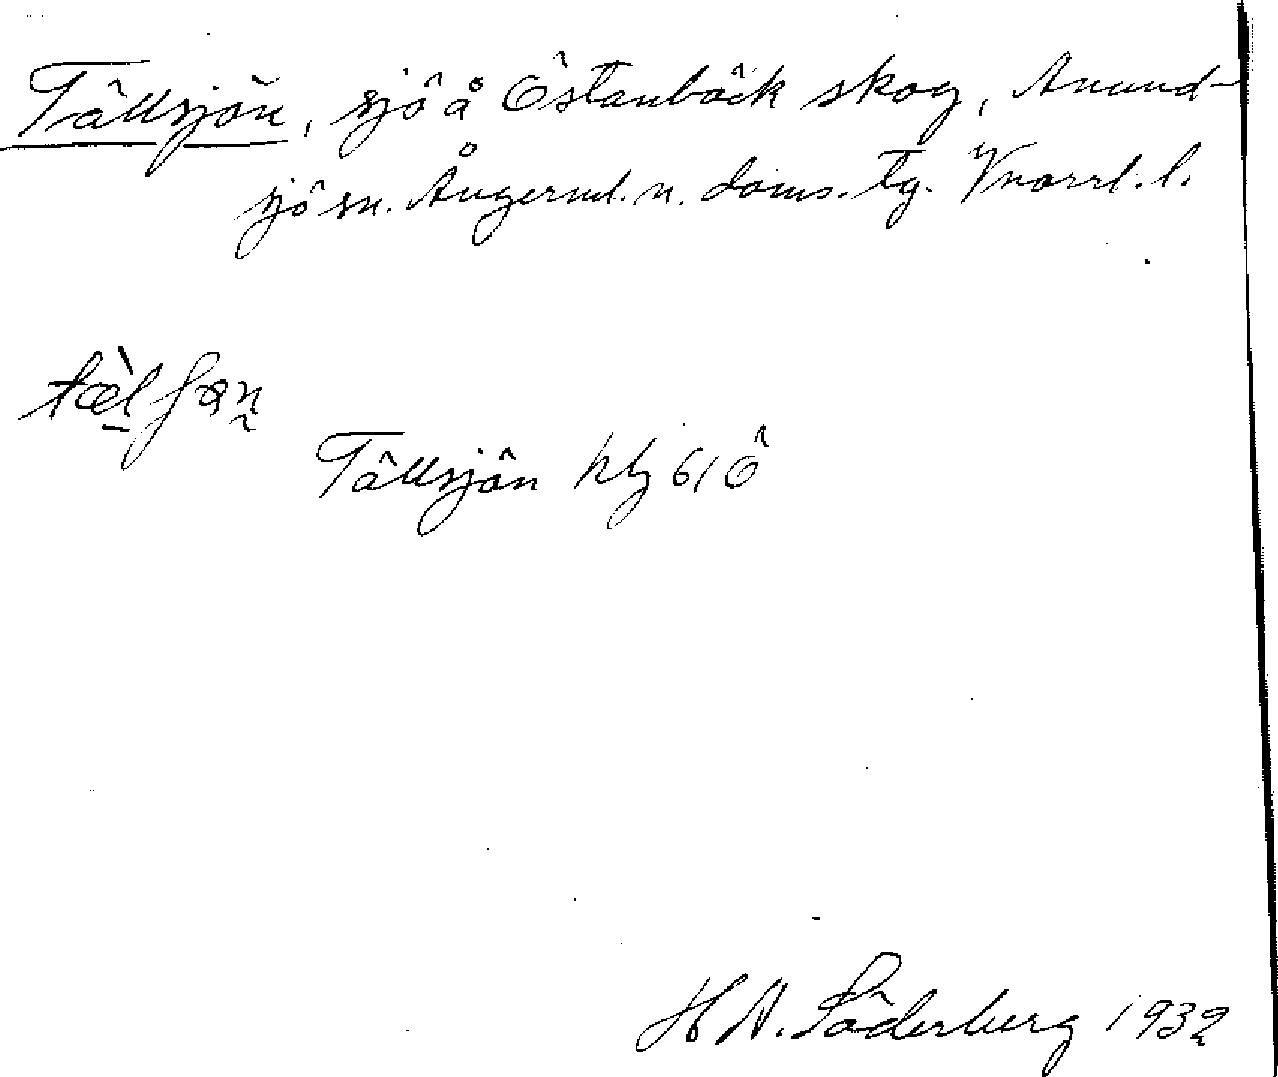 Tällsjön, sjö å Östanbäck skog, Anund-
sjö sn. Ångerml. n. doms. tg. Vnorrl. l.
Tällsjön hbl 61 Ö
H A. Söderberg 1932